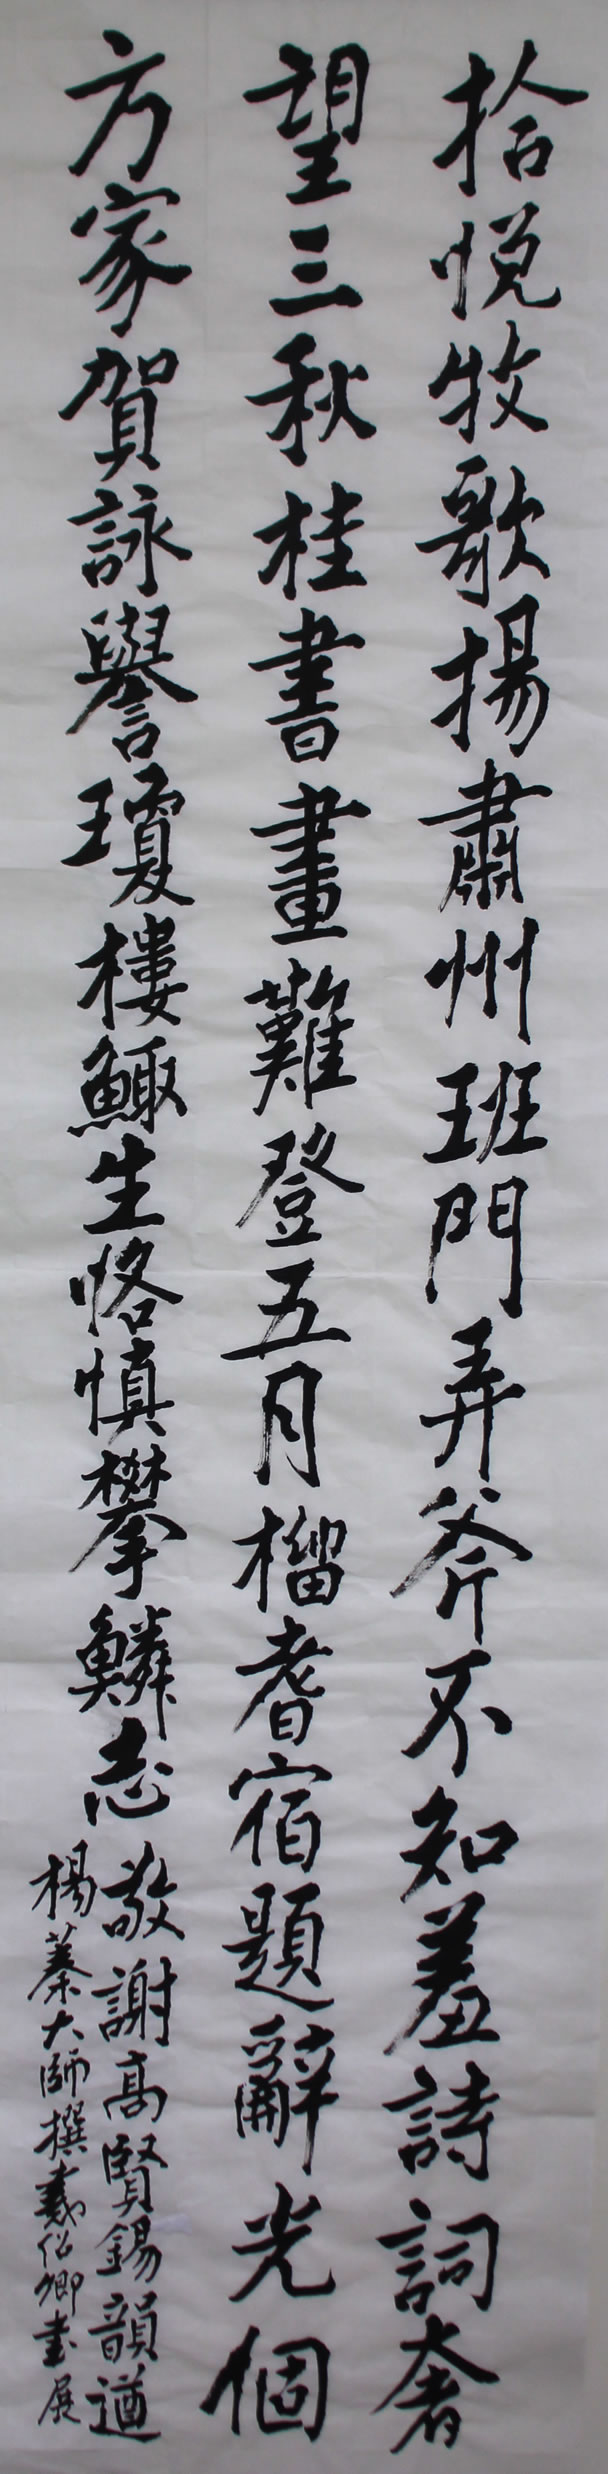 拾悅牧歌揚肅州班門弄斧不知羞詩詞奢
望三秋桂書畫難登五月榴耆宿題辭光個
方家賀詠譽瓊樓鯫生恪慎攀鱗志
敬謝高賢錫韻遒
楊蓁大師撰戴紹卿書展